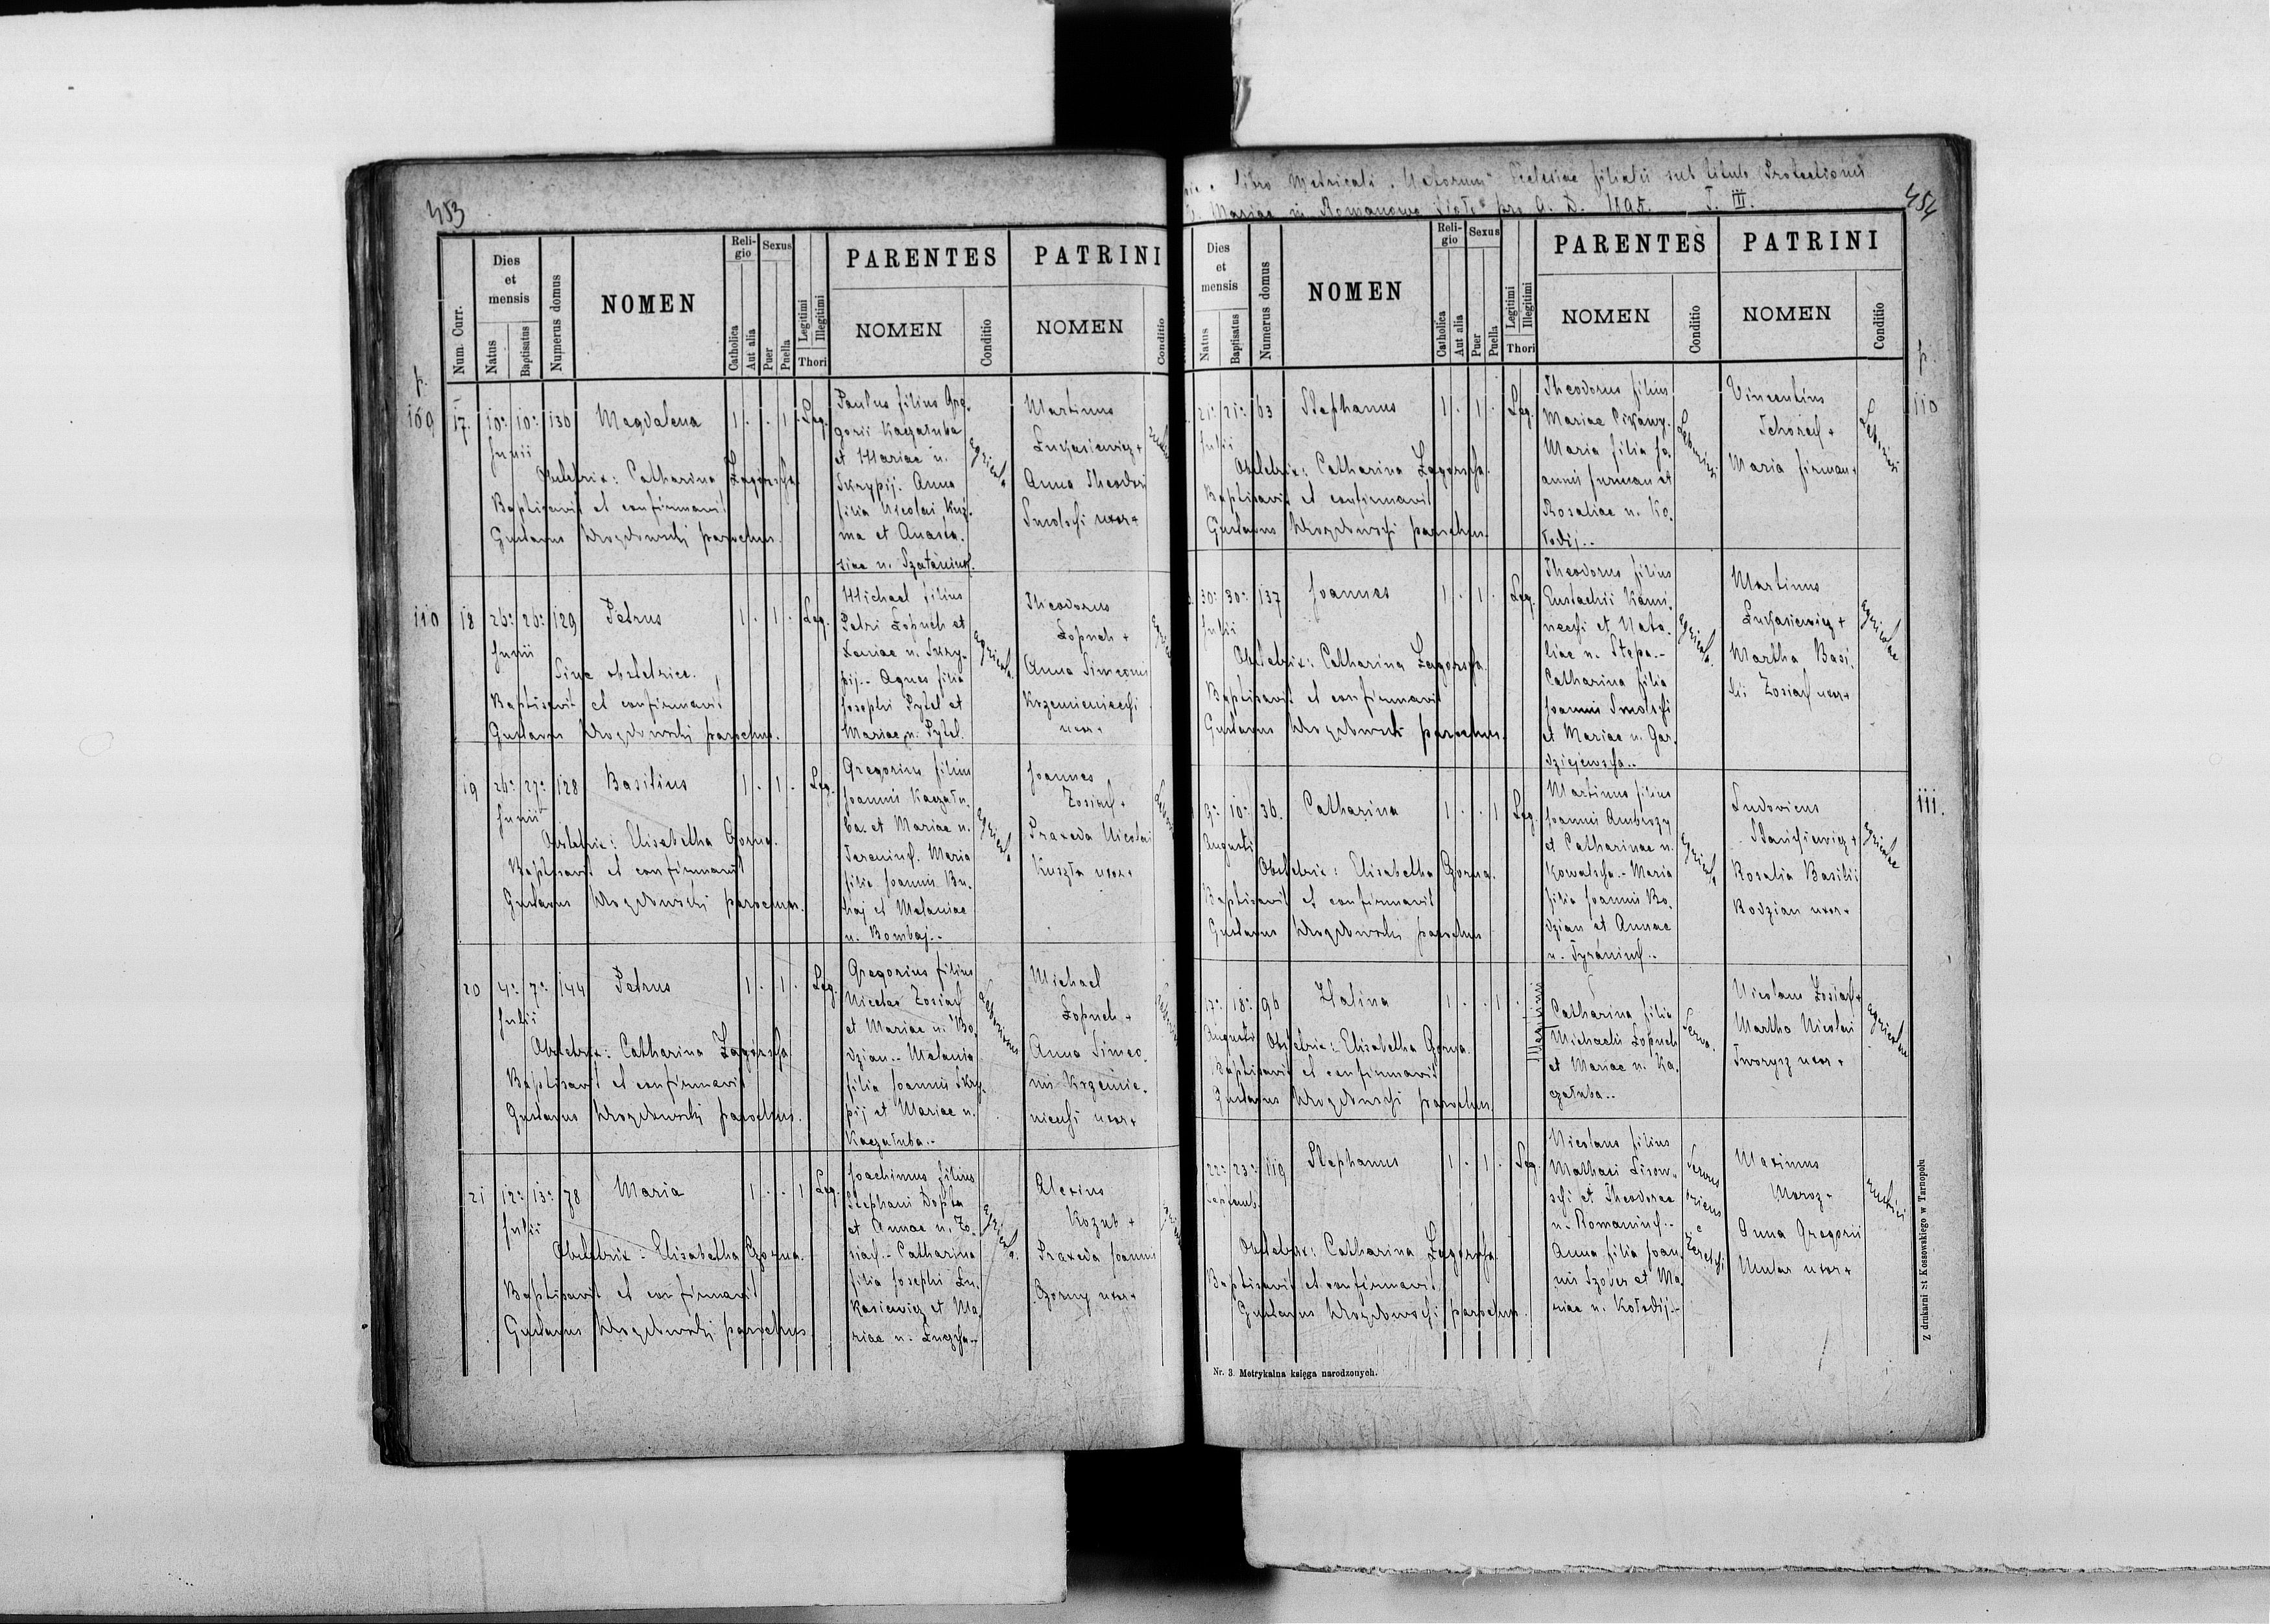 453
Num. Curr.
Dies et mensis
Natus
Baptisatus
Numerus domus
NOMEN
Religio
Catholica
Aut alia
Sexus
Puer
Puella
Legitimi
Illegitimi
Thori
PARENTES
NOMEN
Conditio
PATRINI
NOMEN
Conditio
p. 109
17. 10. 10. 130 Magdalena 1 . . 1 Leg.
Junii
Obstetrix: Catharina Zagórska.
Baptisavit et confirmavit
Gustavus parochus.
Paulus filius Gre-
gorii Kaczałuba
et Mariae n.
Skrypij. Anna
filia Nicolai Kuź-
ma et Anasta-
siae n.
agricola
Martinus
Łukasiewicz +
Anna Theodori
Smolski uxor +
110
18 26. 26. 129 Petrus 1 . 1 . Leg.
Junii
Sine obstetrice.
Baptisavit et confirmavit
Gustavus parochus.
Michael filius
Petri Łopuch et
n. Skry-
pij.- Agnes filia
Josephi Pytel et
Mariae n. Pytel.
agricola
Theodorus
Łopuch +
Anna Simeonis
Krzemieniecki
uxor +
19 26. 27. 128 Basilius 1 . 1 . Leg.
Junii
Obstetrix: Elisabetha Gorna.
Baptisavit et confirmavit
Gustavus parochus.
Gregorius filius
Joannis Kaczału-
ba et Mariae n.
Maria
filia Joannis
et Melaniae
n. Bombaj.-
agricola
Joannes
Zosiak +
Praxeda Nicolai
Kuszła uxor +
20 4. 7. 144 Petrus 1 . 1 . Leg.
Julii
Obstetrix: Catharina Zagórska
Baptisavit et confirmavit
Gustavus parochus.
Gregorius filius
Nicolai Zosiak
et Mariae n. Bo-
dzian.- Melania
filia Joannis Skry-
pij et Mariae n.
Kaczałuba.-
Michael
Łopuch +
Anna Simeo-
nis Krzemie-
niecki uxor +
21 12. 13. 78 Maria 1 . . 1 Leg.
Julii
Obstetrix: Elisabetha Gorna.
Baptisavit et confirmavit
Gustavus parochus.
Joachimus filius
Stephani Dopka
et Annae n. Zo-
siak.- Catharina
filia Josephi Łu-
kasiewicz et Ma-
riae n.
agricola
Alexius
Kozub +
Praxeda Joannis
Gorny uxor +
Libro Metricali "Natorum" Ecclesiae filialis sub titulo Protectionis
Mariae in Romanowe Sioło pro A. D. 1895. T. III.
454
Dies et mensis
Natus
Baptisatus
Numerus domus
NOMEN
Religio
Catholica
Aut alia
Sexus
Puer
Puella
Legitimi
Illegitimi
Thori
PARENTES
NOMEN
Conditio
PATRINI
NOMEN
Conditio
p. 110
21. 21. 63 Stephanus 1 . 1 . Leg.
Julii
Obstetrix: Catharina Zagórska.
Baptisavit et confirmavit
Gustavus parochus.
Theodorus filius
Mariae
Maria filia Jo-
annis Furman et
Rosaliae n. Ko-
łodij.-
Vincentius
Tchórek +
Maria Firman +
30. 30. 137 Joannes 1 . 1 . Leg.
Julii
Obstetrix: Catharina Zagórska.
Baptisavit et confirmavit
Gustavus parochus.
Theodorus filius
Eustachii Kami-
necki et Nata-
liae n. Stepa.-
Catharina filia
Joannis Smolski
et Mariae n. Gar-
dziejewska.-
agricola
Martinus
Łukasiewicz +
Martha Basi-
lii Zosiak uxor +
agricolae
111.
9. 10. 36. Catharina 1 . . 1 Leg.
Augusti
Obstetrix: Elisabetha Gorna.
Baptisavit et confirmavit
Gustavus parochus
Martinus filius
Joannis Ambrozy
et Catharinae n.
Kowalska.- Maria
filia Joannis Bo-
dzian et Annae
n.
agricola
Ludovicus
Stanisiewicz +
Rosalia Basilii
Bodzian uxor +
agricolae
17. 18. 96 Halina 1 . . 1 .
Augusti
Obstetrix: Elisabetha Gorna.
Baptisavit et confirmavit
Gustavus parochus.
Catharina filia
Michaelis Łopuch
et Mariae n. Ka-
czałuba.-
serva
Nicolaus Zosiak +
Martha Nicolai
Tworysz uxor +
agricolae
22. 23. 119 Stephanus 1 . 1 . Leg.
Septemb.
Obstetrix: Catharina Zagórska.
Baptisavit et confirmavit
Gustavus parochus.
Nicolaus filius
Mathaei Lisow-
ski et Theodorae
n. Romaniuk.-
Anna filia Joan-
nis et Ma-
riae n. Kołodij.-
Maximus
Moroz +
Anna Gregorii
uxor +
rustici
Nr. 3. Metrykalna księga narodzonych.
Z drukarni St Kossowskiego w Tarnopolu